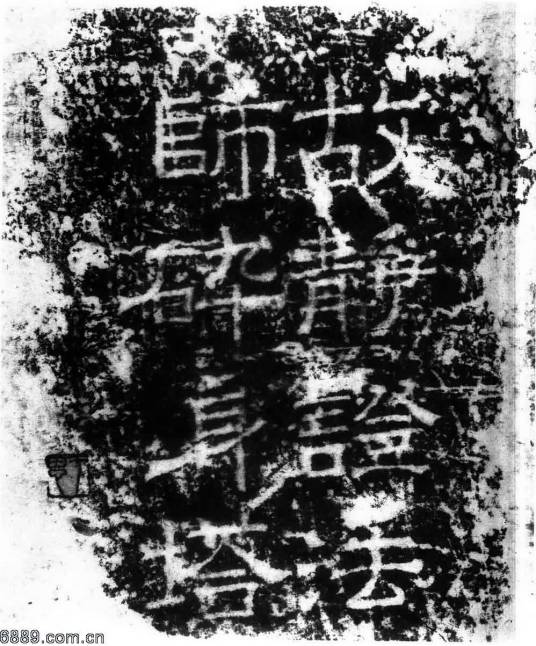 故靜證法
師碎身塔
6889.com.cn